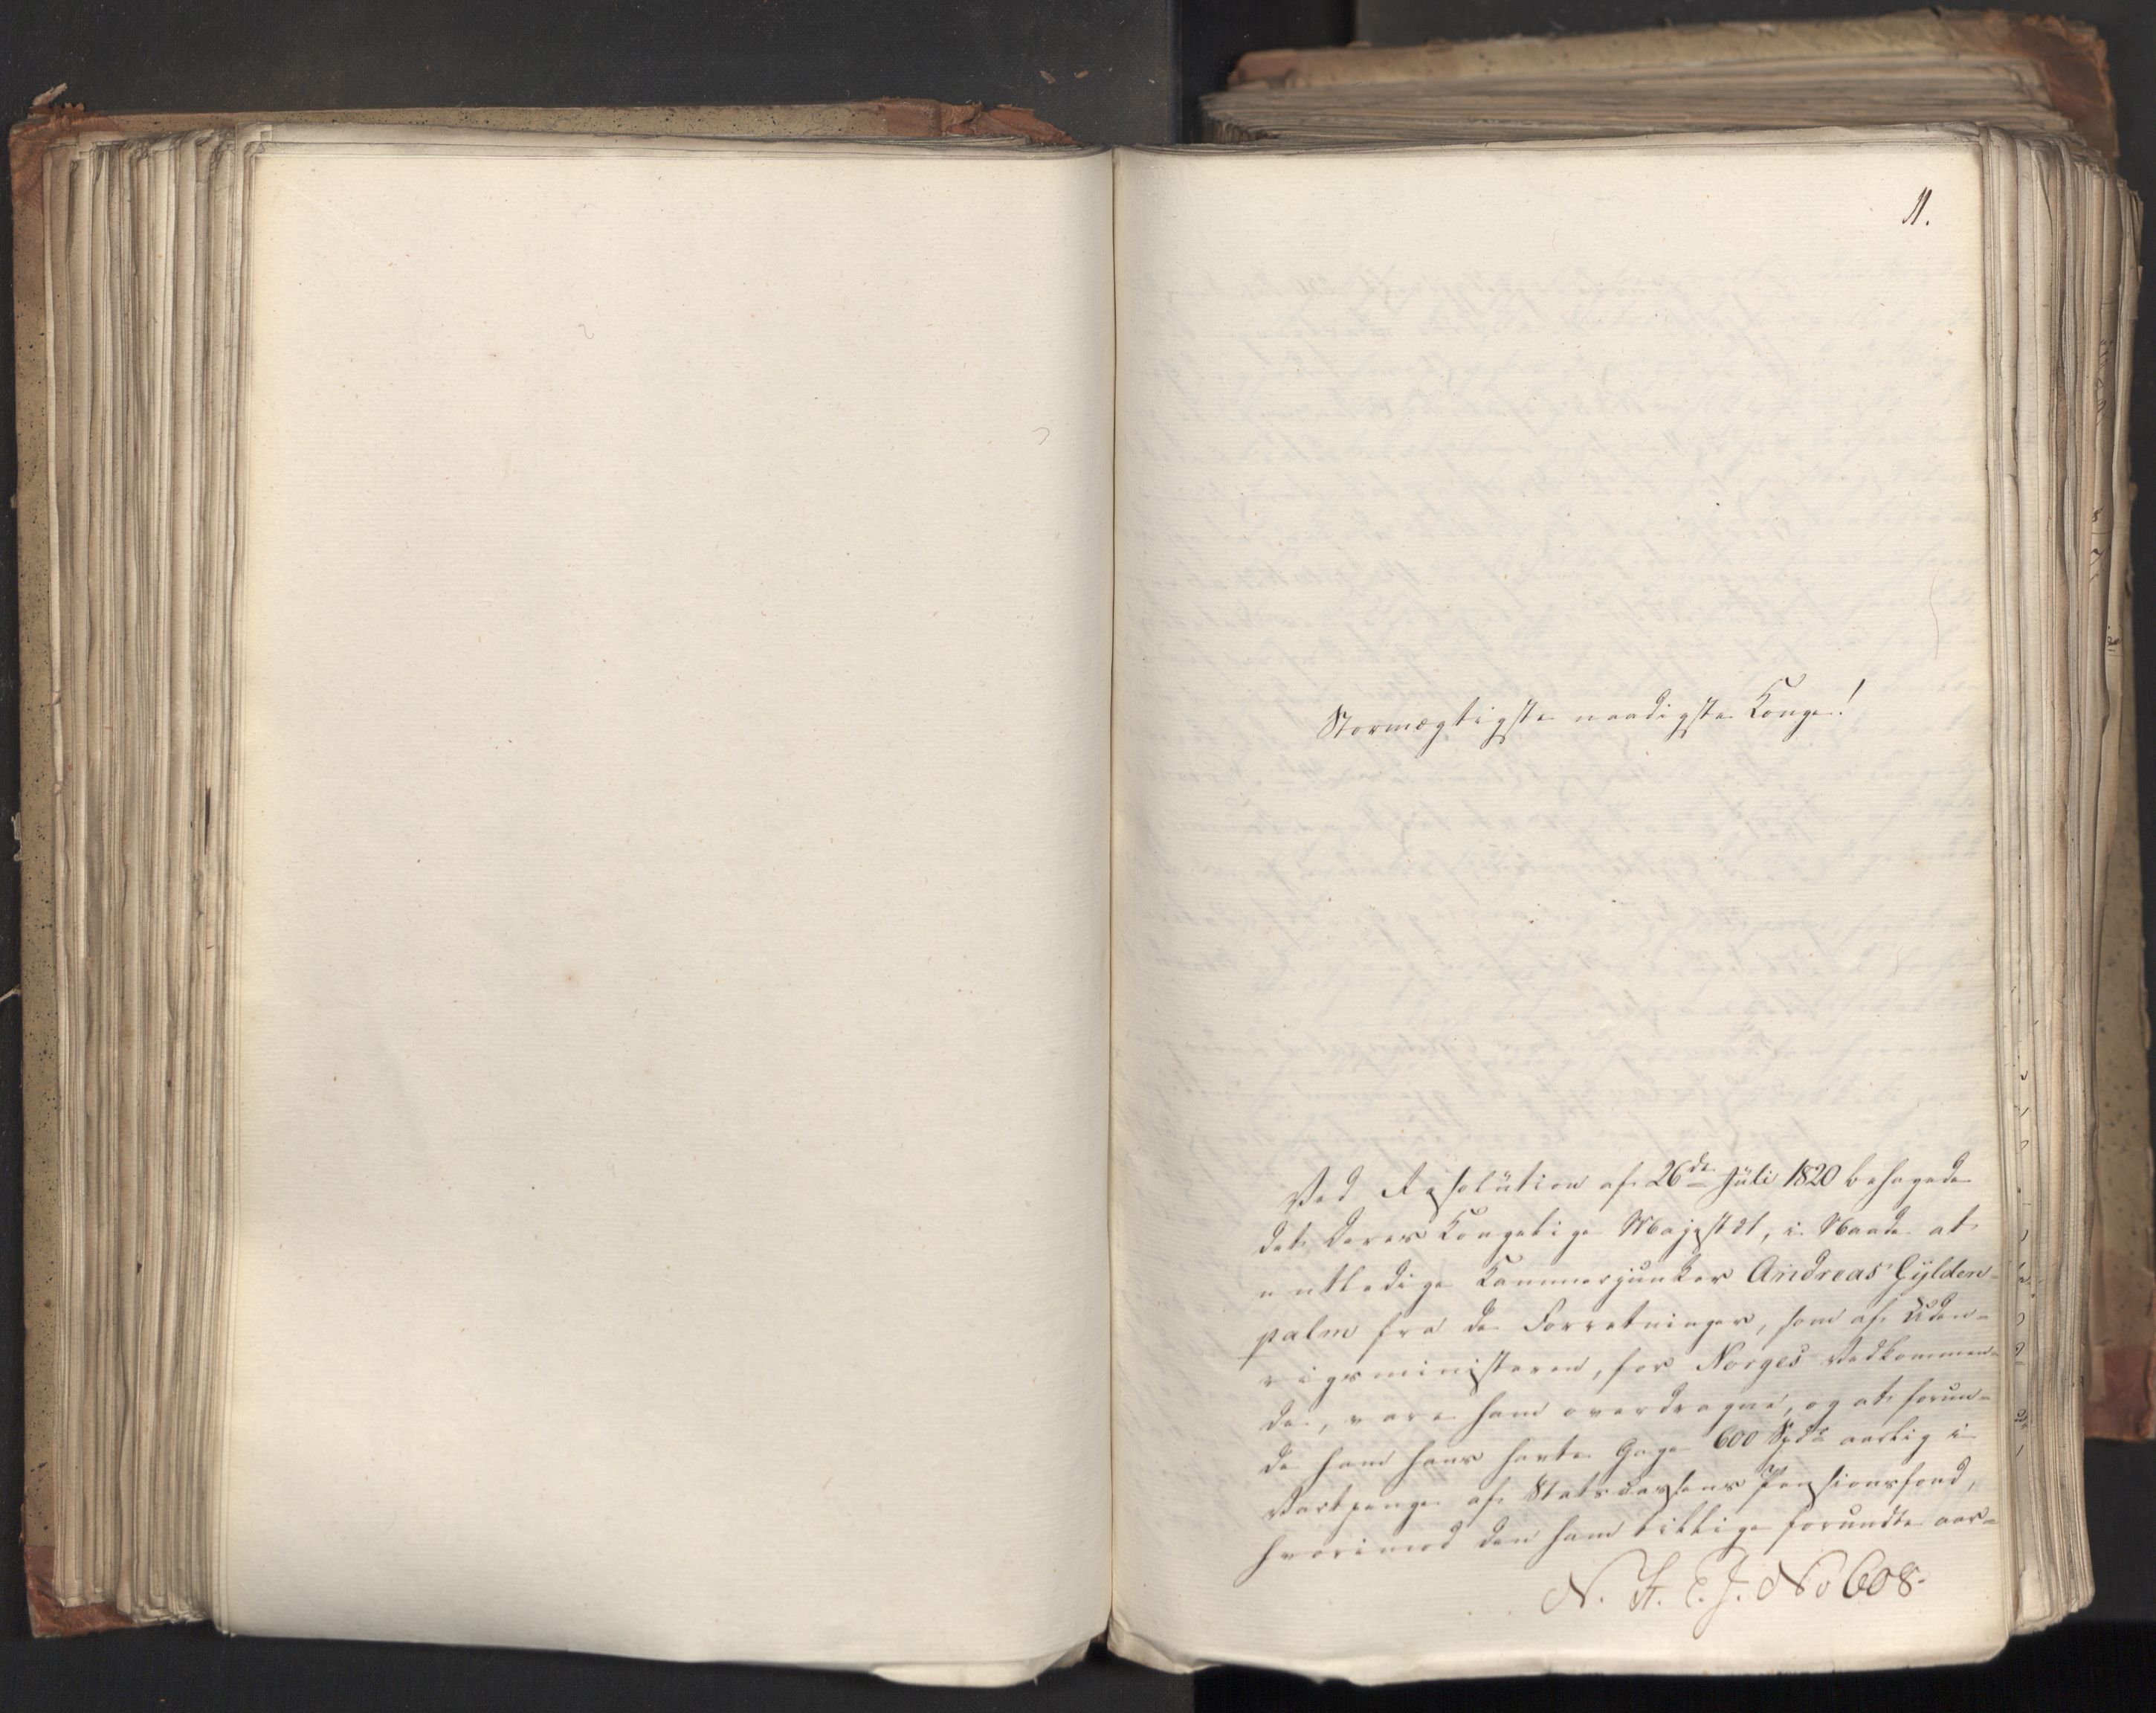 11.
Stormægtigste naadigste Konge!
Ved Resolution af 26de Juli 1820 behagede
det Deres Kongelige Majestæt, i Naade at
entledige Kammerjunker Andreas Gylden-
palm fra de Forretninger, som af Uden-
rigsministeren, for Norges Vedkommen-
de, vare ham overdragne, og at forun-
de ham hans havte Gage 600 Spd aarlig i
Vartpenge af Statscassens Pensionsfond,
hvorimod den ham tillige forundte aar-
N. St. E. J. No 608.